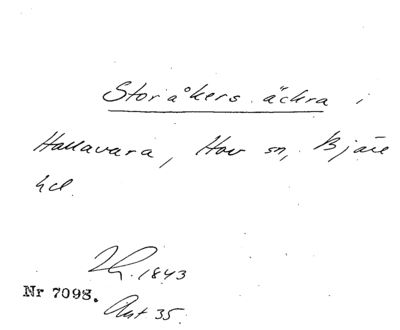 Storåkers äckra i
Hallavara, Hov sn, Bjäre
hd.
1843
Nr 7098.
Akt 35.